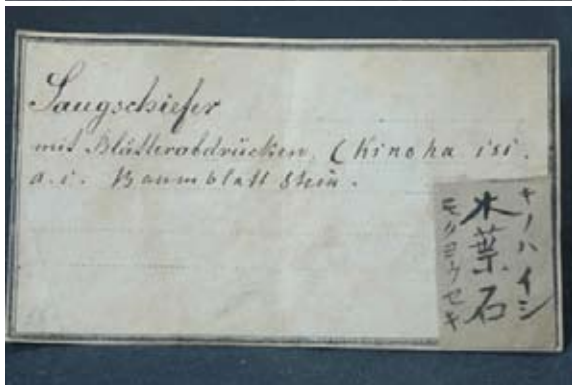 Saugschiefer
mit Blätterabdrücken, (Kinoha isi.
d.i. Baumblatt Stein.
キノハイシ
木葉石
モクヨウセキ